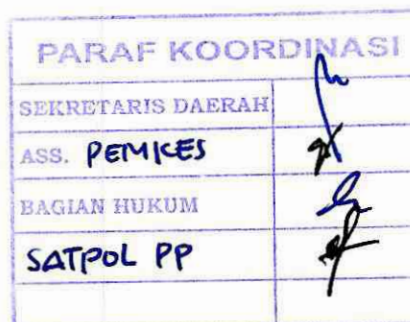 PARAF KOORDINASI
SEKRETARIS DAERAH
ASS. PEMKES
BAGIAN HUKUM
SATPOL PP